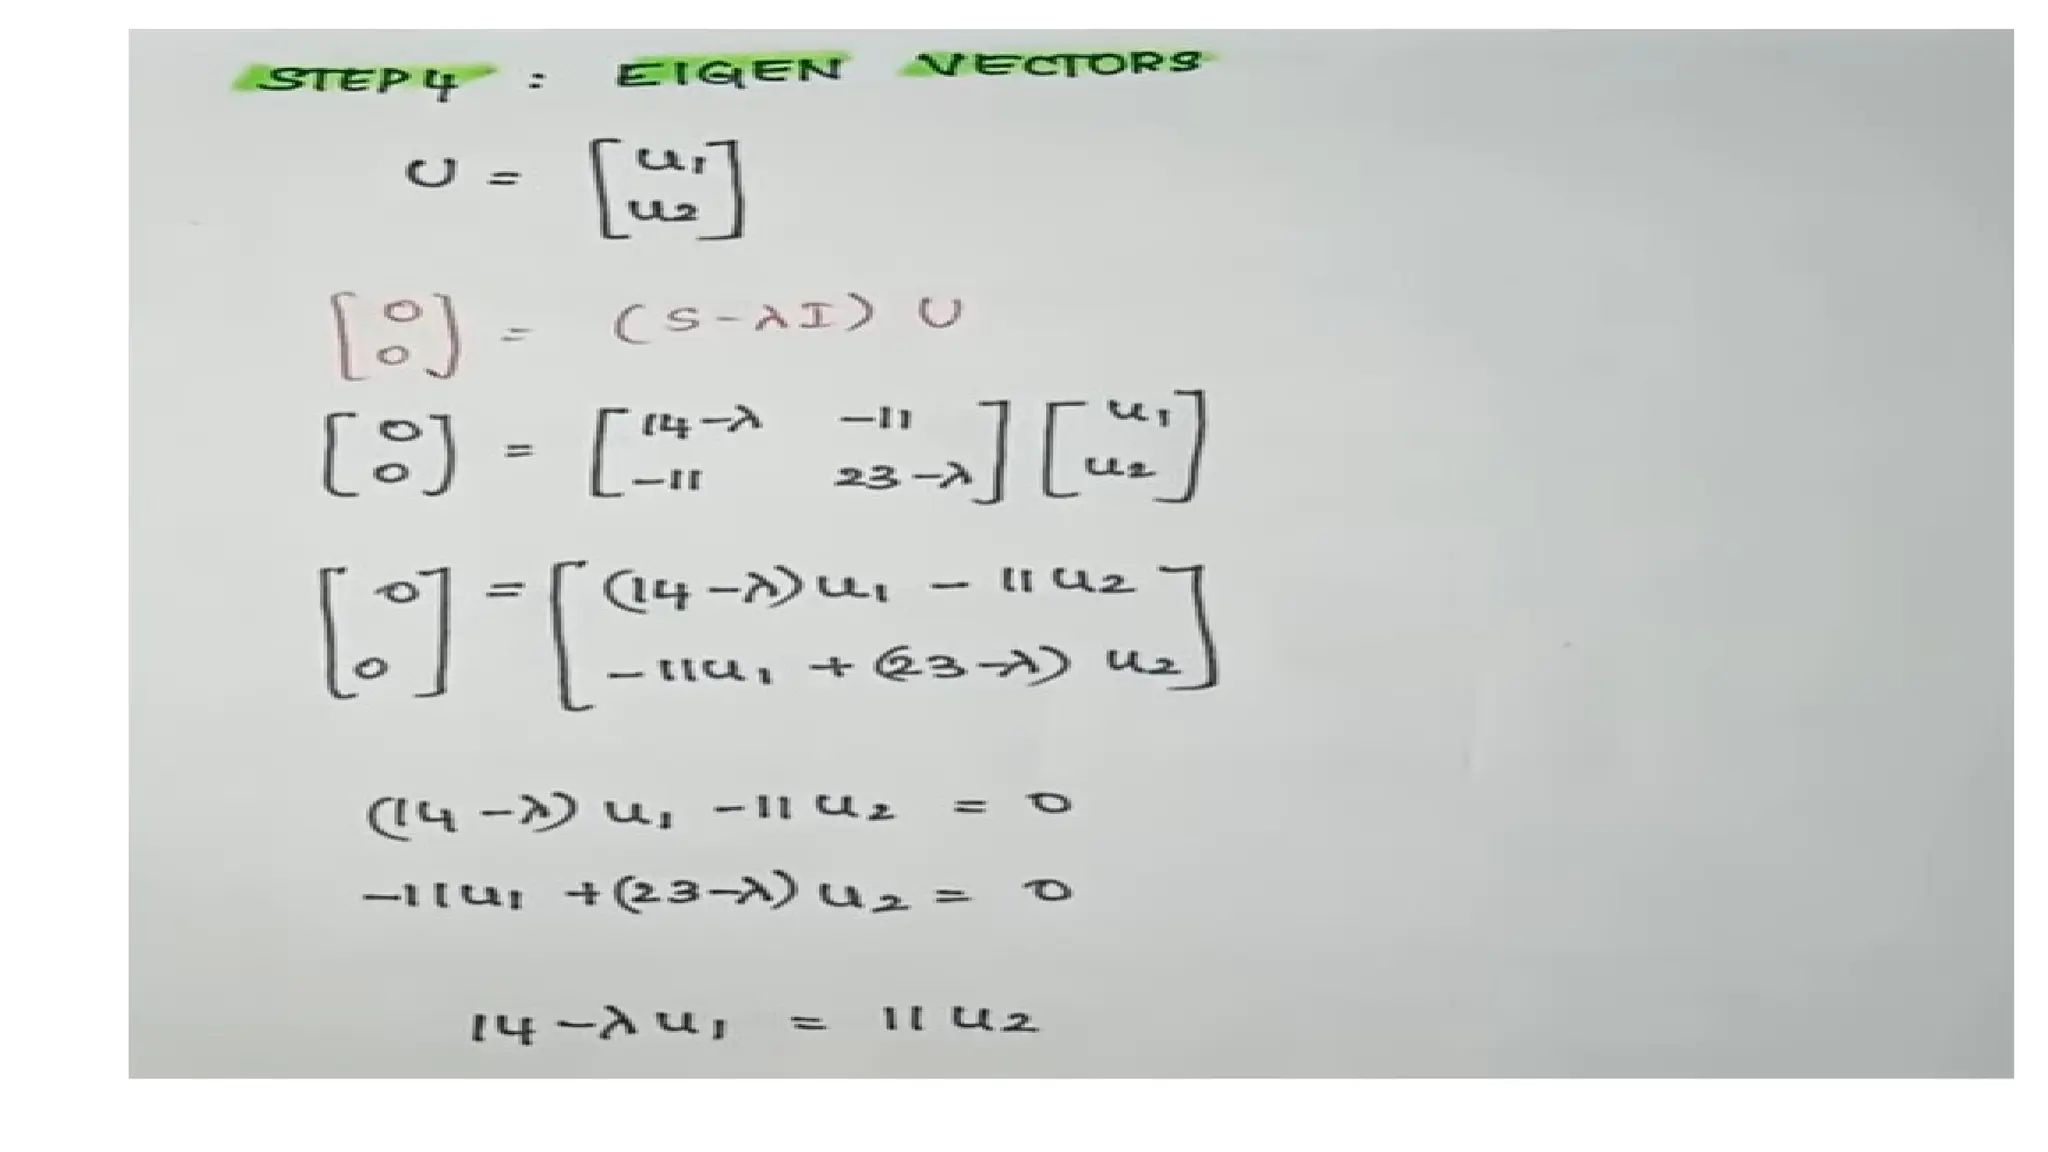 STEP 4 : EIGEN VECTORS
U = [u1
u2]
[0
0] = (S-λI) U
[0
0] = [14-λ -11
-11 23-λ] [u1
u2]
[0
0] = [(14-λ)u1 - 11u2
-11u1 + (23-λ) u2]
(14-λ) u1 - 11u2 = 0
-11u1 + (23-λ) u2 = 0
14-λu1 = 11u2